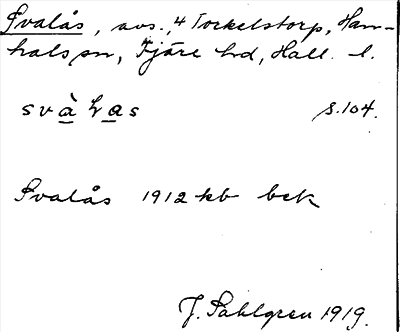 Svalås, avs., 4 Torkelstorp, Han-
hals sn, Fjäre hd, Hall. l.
svàlas s. 104.
Svalås 1912 kb bek
J. Sahlgren 1919.